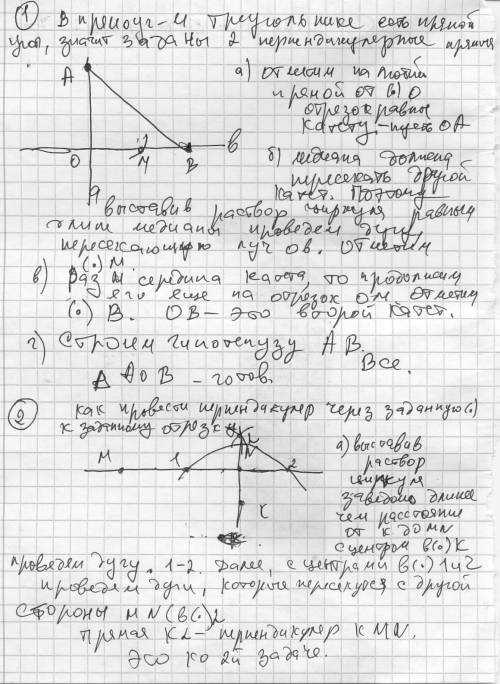 ① В прямоуг-м треугольнике есть прямой
угол, значит заданы 2 перпендикулярные прямые
A
а) отметим на любой
прямой от (.) O
отрезок равный
катету - пусть OA
O M B в
а
б) медиана должна
пересекать другой
катет. Поэтому
выставив раствор циркуля равным
длине медианы проведем дугу,
пересекающую луч Oв. Отметим
(.) M.
в) Раз M середина катета, то продолжим
его еще на отрезок OM. Отметим
(.) B. OB – это второй катет.
г) Строим гипотенузу AB.
Все.
Δ AOB – готов.
② как провести перпендикуляр через заданную (.)
к заданному отрезку
M 1 N 2
K
а) выставив
раствор
циркуля
заведомо длиннее
чем расстояние
от K до MN
с центром в (.) K
проведем дугу 1-2. Далее, с центрами в (.) 1 и 2
проведем дуги, которые пересекутся с другой
стороны MN (в (.) L
Прямая KL – перпендикуляр к MN.
Это ко 2й задаче.